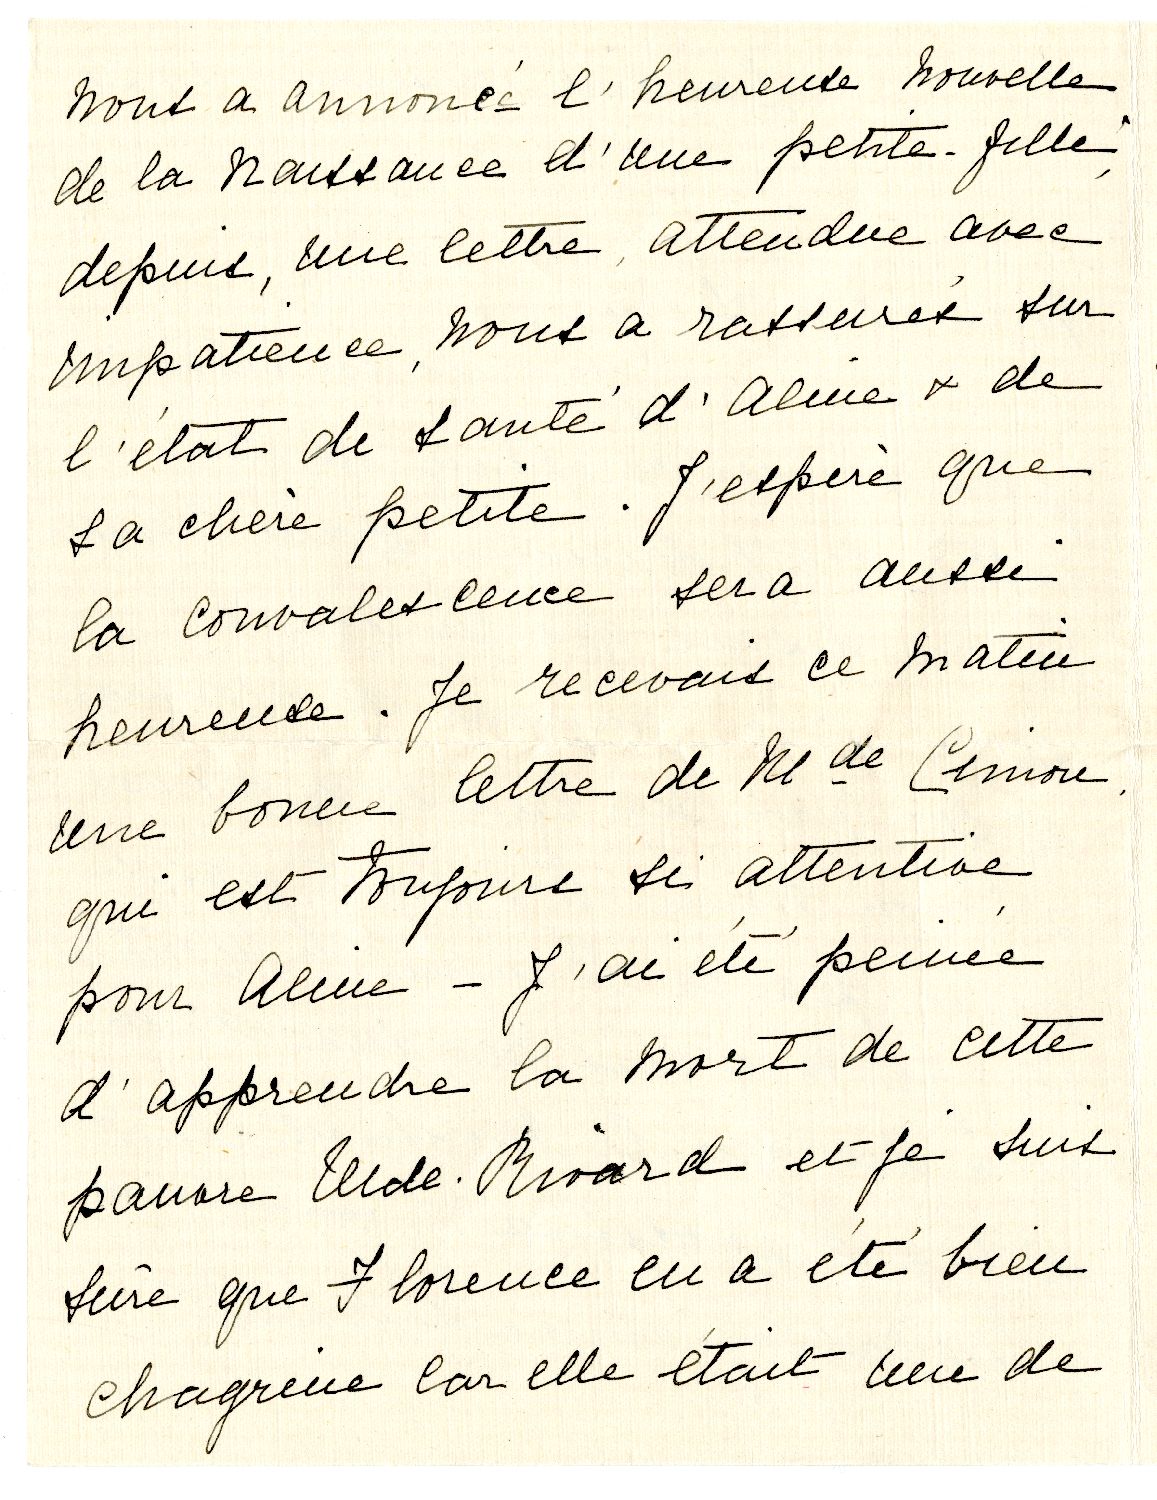 nous a annoncé l'heureuse nouvelle
de la naissance d'une petite-fille,
depuis, une lettre, attendue avec
impatience, nous a rassurés sur
l'état de santé d'Aline & de
sa chère petite. J'espère que
la convalescence sera aussi
heureuse. Je recevais ce matin
une bonne lettre de Mde Cimon,
qui est toujours si attentive
pour Aline - J'ai été peinée
d'apprendre la mort de cette
pauvre Mde. Rivard et je suis
sûre que Florence en a été bien
chagrine car elle était une de